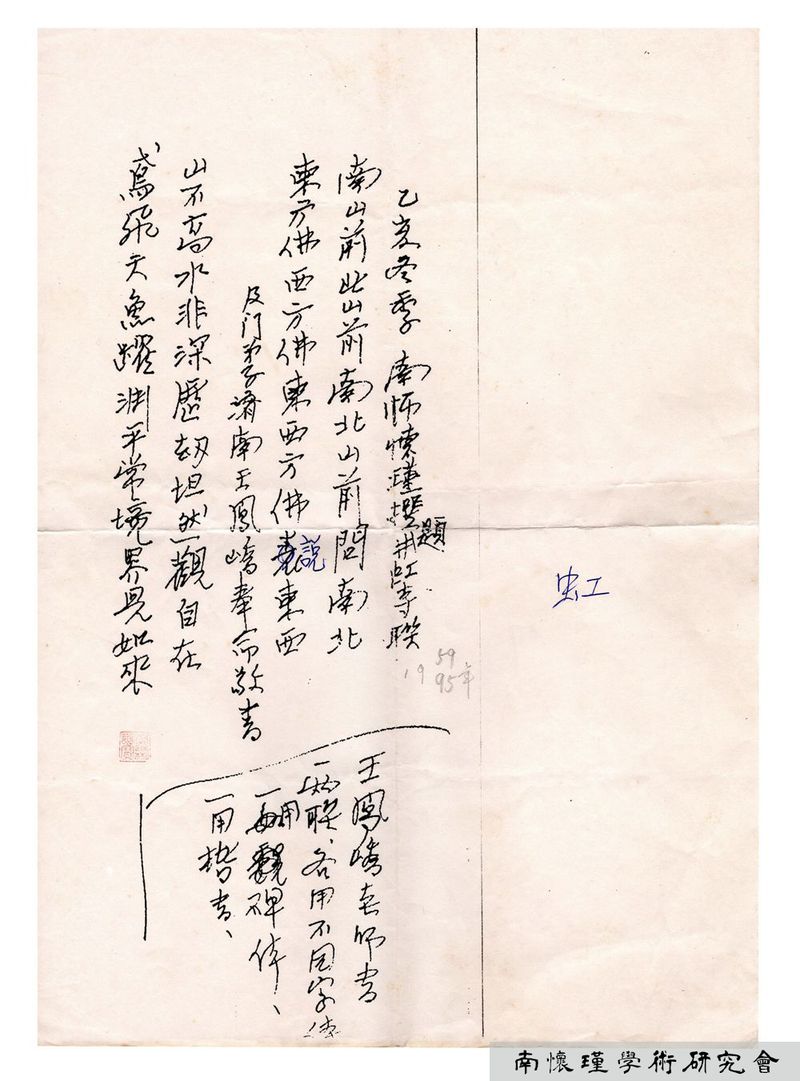 虹
乙亥冬季 南师懷瑾撰題井虹寺聯
1959
95年
南山前北山前南北山前問南北
東方佛西方佛東西方佛說東西
及门弟子濟南王鳳嶠奉命敬書
山不高水非深歷劫坦然觀自在
鳶飛天魚躍渊平常境界見如來
王鳳嶠老师書
聯、各用不同字体
一用魏碑体、
一用楷書、
南懷瑾學術研究會